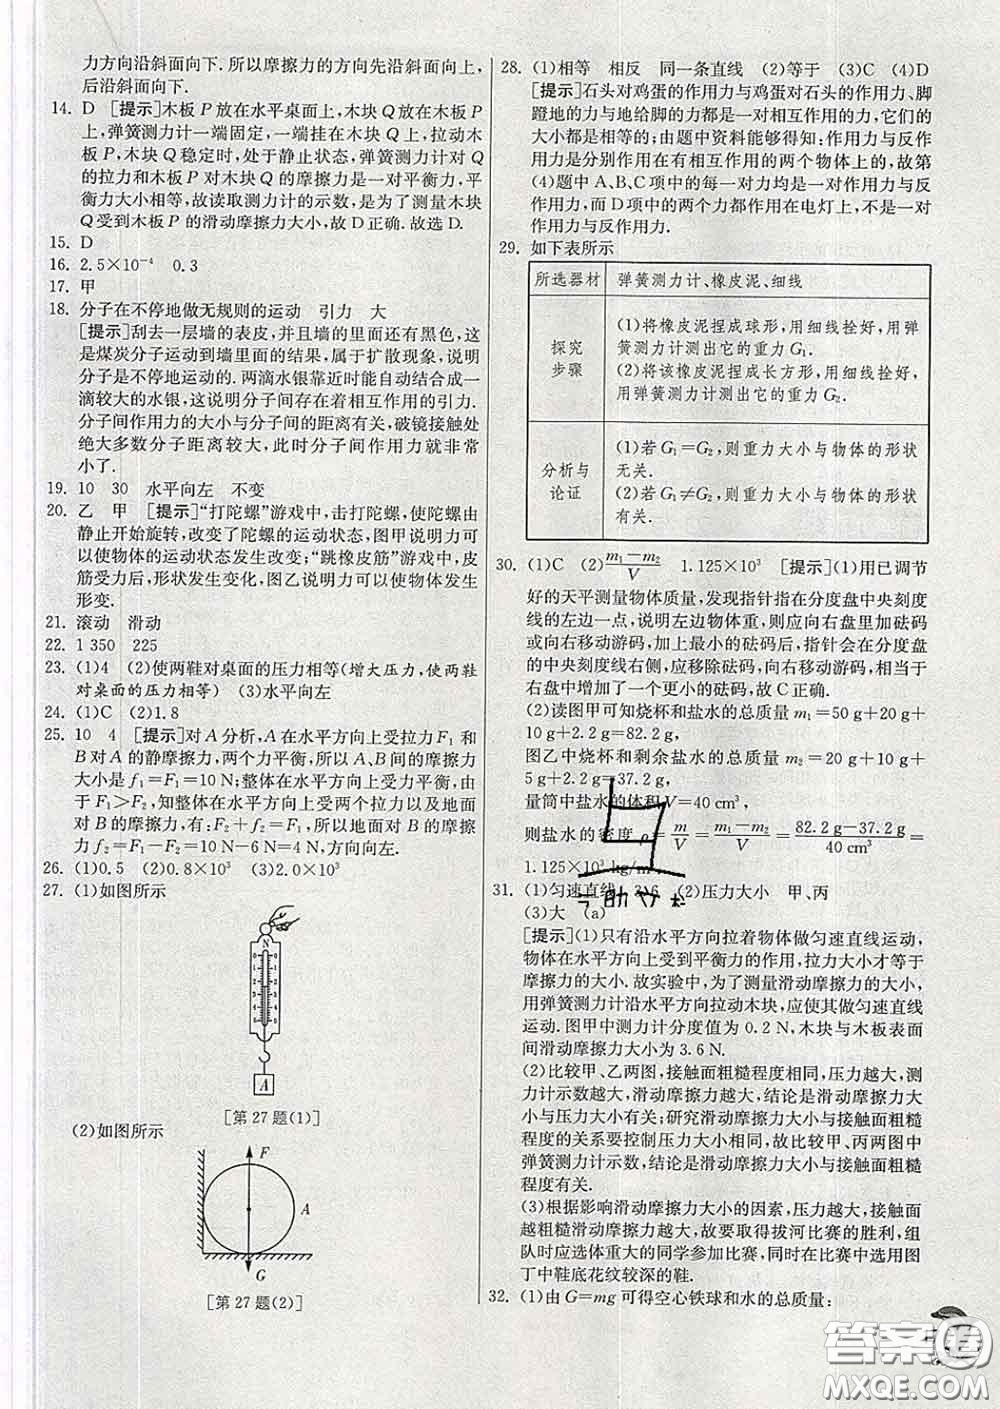 力方向沿斜面向下. 所以摩擦力的方向先沿斜面向上,
后沿斜面向下.
14. D [提示]木板 P 放在水平桌面上,木块 Q 放在木板 P
上,弹簧测力计一端固定,一端挂在木块 Q 上,拉动木
板 P,木块 Q 稳定时,处于静止状态,弹簧测力计对 Q
的拉力和木板 P 对木块 Q 的摩擦力是一对平衡力,平
衡力大小相等,故读取测力计的示数,是为了测量木块
Q 受到木板 P 的滑动摩擦力大小,故 D 正确. 故选 D.
15. D
16. 2.5×10⁻⁴ 0.3
17. 甲
18. 分子在不停地做无规则的运动 引力 大
[提示]刮去一层墙的表皮,并且墙的里面还有黑色,这
是煤炭分子运动到墙里面的结果,属于扩散现象,说明
分子是不停地运动的. 两滴水银靠近时能自动结合成一
滴较大的水银,这说明分子间存在着相互作用的引力.
分子间作用力的大小与分子间的距离有关,破镜接触处
绝大多数分子距离较大,此时分子间作用力就非常
小了.
19. 10 30 水平向左 不变
20. 乙 甲 [提示]“打陀螺”游戏中,击打陀螺,使陀螺由
静止开始旋转,改变了陀螺的运动状态,图甲说明力可
以使物体的运动状态发生改变;“跳橡皮筋”游戏中,皮
筋受力后,形状发生变化,图乙说明力可以使物体发生
形变.
21. 滚动 滑动
22. 1 350 225
23. (1)4 (2)使两鞋对桌面的压力相等(增大压力,使两鞋
对桌面的压力相等) (3)水平向左
24. (1)C (2)1.8
25. 10 4 [提示]对 A 分析,A 在水平方向上受拉力 F₁ 和
B 对 A 的静摩擦力,两个力平衡,所以 A、B 间的摩擦力
大小是 f₁=F₁=10 N;整体在水平方向上受力平衡,由
于 F₁>F₂,知整体在水平方向上受两个拉力以及地面
对 B 的摩擦力,有:F₂+f₂=F₁,所以地面对 B 的摩擦
力 f₂=F₁-F₂=10 N-6 N=4 N,方向向左.
26. (1)0.5 (2)0.8×10³ (3)2.0×10³
27. (1)如图所示
N
0 0
1 1
2 2
3 3
4 4
5 5
A
[第 27 题(1)]
(2)如图所示
F
A
G
[第 27 题(2)]
28. (1)相等 相反 同一条直线 (2)等于 (3)C (4)D
[提示]石头对鸡蛋的作用力与鸡蛋对石头的作用力、脚
蹬地的力与地给脚的力都是一对相互作用的力,它们的
大小都是相等的;由题中资料能够得知:作用力与反作
用力是分别作用在有相互作用的两个物体上的,故第
(4)题中 A、B、C 项中的每一对力均是作用力与反作
用力,而 D 项中的两个力都作用在电灯上,不是一对
作用力与反作用力.
29. 如下表所示
所选器材 弹簧测力计、橡皮泥、细线
探究
步骤
(1)将橡皮泥捏成球形,用细线拴好,用弹
簧测力计测出它的重力 G₁.
(2)将该橡皮泥捏成长方形,用细线拴好,
用弹簧测力计测出它的重力 G₂.
分析与
论证
(1)若 G₁=G₂,则重力大小与物体的形状
无关.
(2)若 G₁≠G₂,则重力大小与物体的形状
有关.
30. (1)C (2)(m₁-m₂)/V 1.125×10³ [提示](1)用已调节
好的天平测量物体质量,发现指针指在分度盘中央刻度
线的左边一点,说明左边物体重,则应向右盘里加砝码
或向右移动游码,加上最小的砝码后,指针会在分度盘
的中央刻度线右侧,应移除砝码,向右移动游码,相当于
右盘中增加了一个更小的砝码,故 C 正确.
(2)读图甲可知烧杯和盐水的总质量 m₁=50 g+20 g+
10 g+2.2 g=82.2 g,
图乙中烧杯和剩余盐水的总质量 m₂=20 g+10 g+
5 g+2.2 g=37.2 g,
量筒中盐水的体积 V=40 cm³,
则盐水的密度 ρ=m/V=(m₁-m₂)/V=(82.2 g-37.2 g)/40 cm³=
1.125×10³ kg/m³.
31. (1)匀速直线 3.6 (2)压力大小 甲、丙
(3)大 (a)
[提示](1)只有沿水平方向拉着物体做匀速直线运动,
物体在水平方向上受到平衡力的作用,拉力大小才等于
摩擦力的大小. 故实验中,为了测量滑动摩擦力的大小,
用弹簧测力计沿水平方向拉动木块,应使其做匀速直线
运动. 图甲中测力计分度值为 0.2 N,木块与木板表面
间滑动摩擦力大小为 3.6 N.
(2)比较甲、乙两图,接触面粗糙程度相同,压力越大,测
力计示数越大,滑动摩擦力越大,结论是滑动摩擦力大
小与压力大小有关;研究滑动摩擦力大小与接触面粗糙
程度的关系要控制压力大小相同,故比较甲、丙两图中
弹簧测力计示数,结论是滑动摩擦力大小与接触面粗糙
程度有关.
(3)根据影响滑动摩擦力大小的因素,压力越大,接触面
越粗糙滑动摩擦力越大,故要取得拔河比赛的胜利,组
队时应选体重大的同学参加比赛,同时在比赛中选用图
丁中鞋底花纹较深的鞋.
32. (1)由 G=mg 可得空心铁球和水的总质量:
答案圈
MXQE.COM